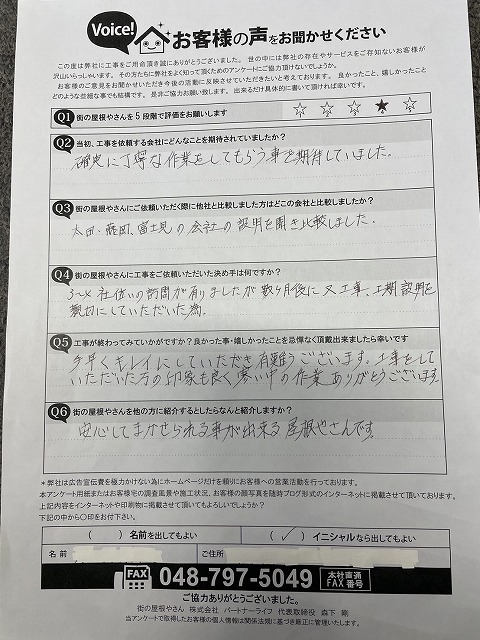 Voice! お客様の声をお聞かせください
この度は弊社に工事をご用命頂き誠にありがとうございました。世の中には弊社の存在やサービスをご存知ないお客様が
沢山いらっしゃいます。その方たちに弊社をよく知って頂くためのアンケートにご協力頂けないでしょうか。
お客様のご意見をお聞かせいただき今後の活動に反映させていただきたいと考えております。良かったこと、嬉しかったこと
どのような些細な事でも結構です。是非ご協力お願い致します。出来るだけ具体的に書いて頂ければ幸いです。
Q1 街の屋根やさんを5段階で評価をお願いします ☆ ☆ ☆ ★ ☆
Q2 当初、工事を依頼する会社にどんなことを期待されていましたか?
確実に丁寧な作業をしてもらう事を期待していました。
Q3 街の屋根やさんにご依頼いただく際に他社と比較しました方はどこの会社と比較しましたか?
太田、藤岡、富士見の会社の説明を聞き比較しました。
Q4 街の屋根やさんに工事をご依頼いただいた決め手は何ですか?
3~4社位いの訪問が有りましたが数ヶ月後に又工事、工期説明を
親切にしていただいた為。
Q5 工事が終わってみていかがですか?良かった事・嬉しかったことを忌憚なく頂戴出来ましたら幸いです
手早くキレイにしていただき有難うございます。工事をして
いただいた方の印象も良く寒い中の作業ありがとうございます。
Q6 街の屋根やさんを他の方に紹介するとしたらなんと紹介しますか?
安心してまかせられる事が出来る屋根やさんです。
*弊社は広告宣伝費を極力かけない為にホームページだけを頼りにお客様への営業活動を行っております。
本アンケート用紙またはお客様宅の調査風景や施工状況、お客様の顔写真を随時ブログ形式のインターネットに掲載させて頂いております。
上記内容をインターネットや印刷物に掲載させて頂いてもよろしいでしょうか?
下記の中から〇印をお付下さい。
( ) 名前を出してもよい ( ✓ ) イニシャルなら出してもよい
名前 ご住所
FAX 048-797-5049 本社直通 FAX番号
ご協力ありがとうございました。
街の屋根やさん 株式会社 パートナーライフ 代表取締役 森下 剛
当アンケートで取得したお客様の個人情報は関係法規に基づき厳正に管理いたします。